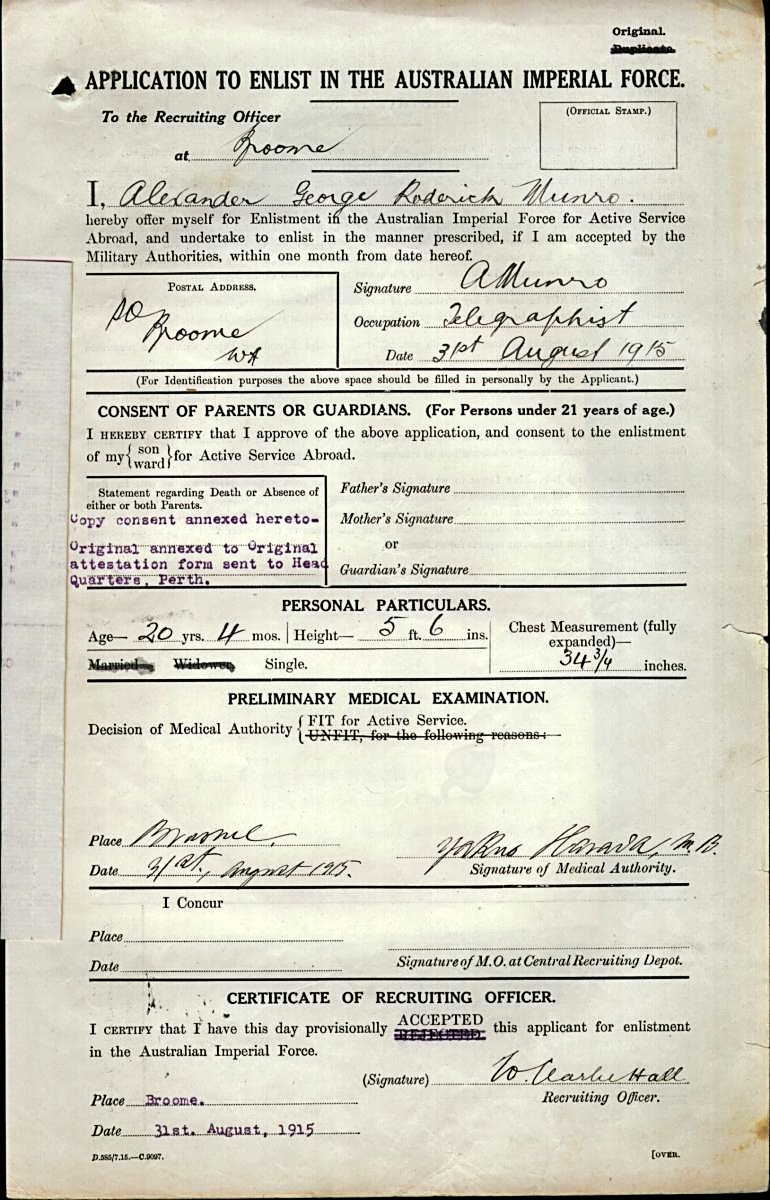 Original.
Duplicate.
APPLICATION TO ENLIST IN THE AUSTRALIAN IMPERIAL FORCE.
To the Recruiting Officer
(OFFICIAL STAMP.)
at Broome
I, Alexander George Roderick Munro.
hereby offer myself for Enlistment in the Australian Imperial Force for Active Service
Abroad, and undertake to enlist in the manner prescribed, if I am accepted by the
Military Authorities, within one month from date hereof.
POSTAL ADDRESS.
Broome
WA
Signature A Munro
Occupation Telegraphist
Date 31st August 1915
(For Identification purposes the above space should be filled in personally by the Applicant.)
CONSENT OF PARENTS OR GUARDIANS. (For Persons under 21 years of age.)
I HEREBY CERTIFY that I approve of the above application, and consent to the enlistment
of my { son ward } for Active Service Abroad.
Statement regarding Death or Absence of
either or both Parents.
Copy consent annexed hereto-
Original annexed to Original
attestation form sent to Head
Quarters, Perth.
Father's Signature
Mother's Signature
or
Guardian's Signature
PERSONAL PARTICULARS.
Age— 20 yrs. 4 mos. Height— 5 ft. 6 ins.
Chest Measurement (fully
expanded)—
34 3/4 inches.
Married Widower Single.
PRELIMINARY MEDICAL EXAMINATION.
Decision of Medical Authority { FIT for Active Service.
UNFIT, for the following reasons:—
Place Broome.
Date 31st, August 1915.
M.B.
Signature of Medical Authority.
I Concur
Place
Date
Signature of M.O. at Central Recruiting Depot.
CERTIFICATE OF RECRUITING OFFICER.
I CERTIFY that I have this day provisionally ACCEPTED REJECTED this applicant for enlistment
in the Australian Imperial Force.
(Signature) W. Clarke Hall
Recruiting Officer.
Place Broome.
Date 31st. August, 1915
D.585/7.15.—C.9097.
[OVER.